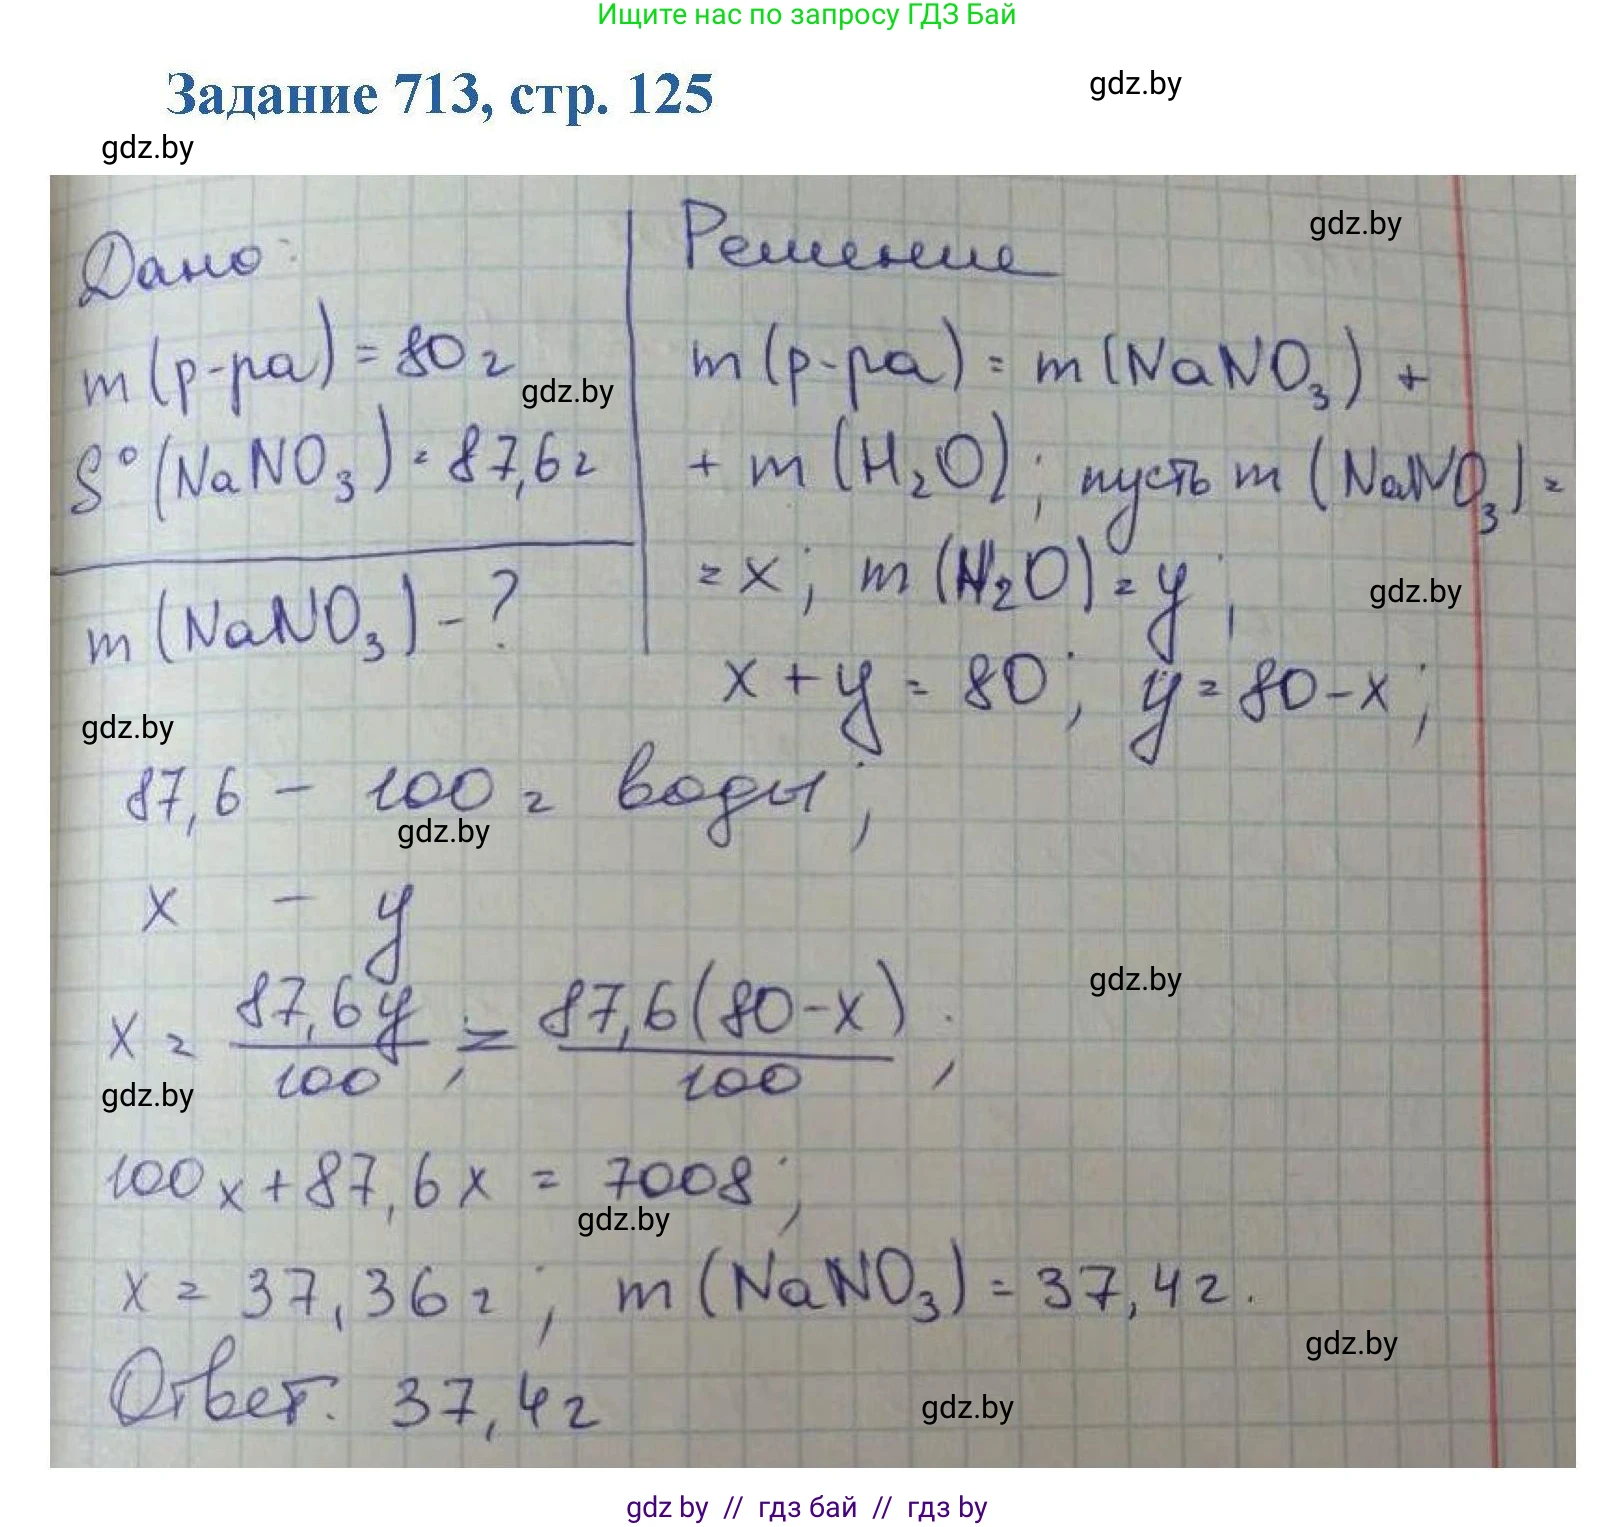 Ищите нас по запросу ГДЗ Бай
Задание 713, стр. 125
gdz.by
gdz.by
Дано:
m(р-ра) = 80 г
gdz.by
S°(NaNO₃) = 87,6 г
m(NaNO₃) - ?
gdz.by
Решение
gdz.by
m(р-ра) = m(NaNO₃) +
+ m(H₂O); пусть m(NaNO₃) =
= x; m(H₂O) = y;
gdz.by
x + y = 80; y = 80 - x;
87,6 - 100 г воды;
gdz.by
x - y
gdz.by
x = 87,6y/100; = 87,6(80-x)/100;
gdz.by
100x + 87,6x = 7008;
gdz.by
x = 37,36 г; m(NaNO₃) = 37,4 г.
gdz.by
Ответ: 37,4 г
gdz.by
gdz by // гдз бай // гдз by